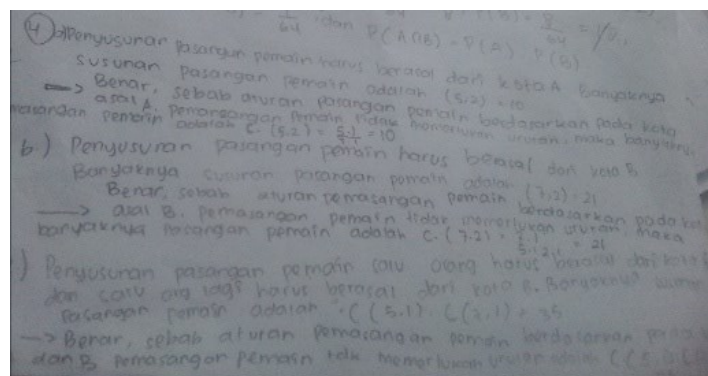 1/64 dan P(A∩B) = P(A) . P(B)
4) a) Penyusunan pasangan pemain harus berasal dari kota A Banyaknya
susunan pasangan pemain adalah (5.2) = 10
→ Benar, sebab aturan pasangan pemain berdasarkan pada kota
asal A. Pemasangan pemain tidak memerlukan urutan, maka banyaknya
pasangan pemain adalah C. (5.2) = = 10
b.) Penyusunan pasangan pemain harus berasal dari kota B
Banyaknya susunan pasangan pemain adalah (7.2) = 21
Benar, sebab aturan pemasangan pemain berdasarkan pada
→ asal B. pemasangan pemain tidak memerlukan urutan, maka
banyaknya pasangan pemain adalah C. (7.2) = = 21
) Penyusunan pasangan pemain satu orang harus berasal dari kota
dan satu org lagi harus berasal dari kota B. Banyaknya
pasangan pemain adalah C (5.1) . C(7.1) = 35
→ Benar, sebab aturan pemasangan pemain berdasarkan pada
dan B pemasangan pemain tdk memerlukan urutan adalah C(5.1)